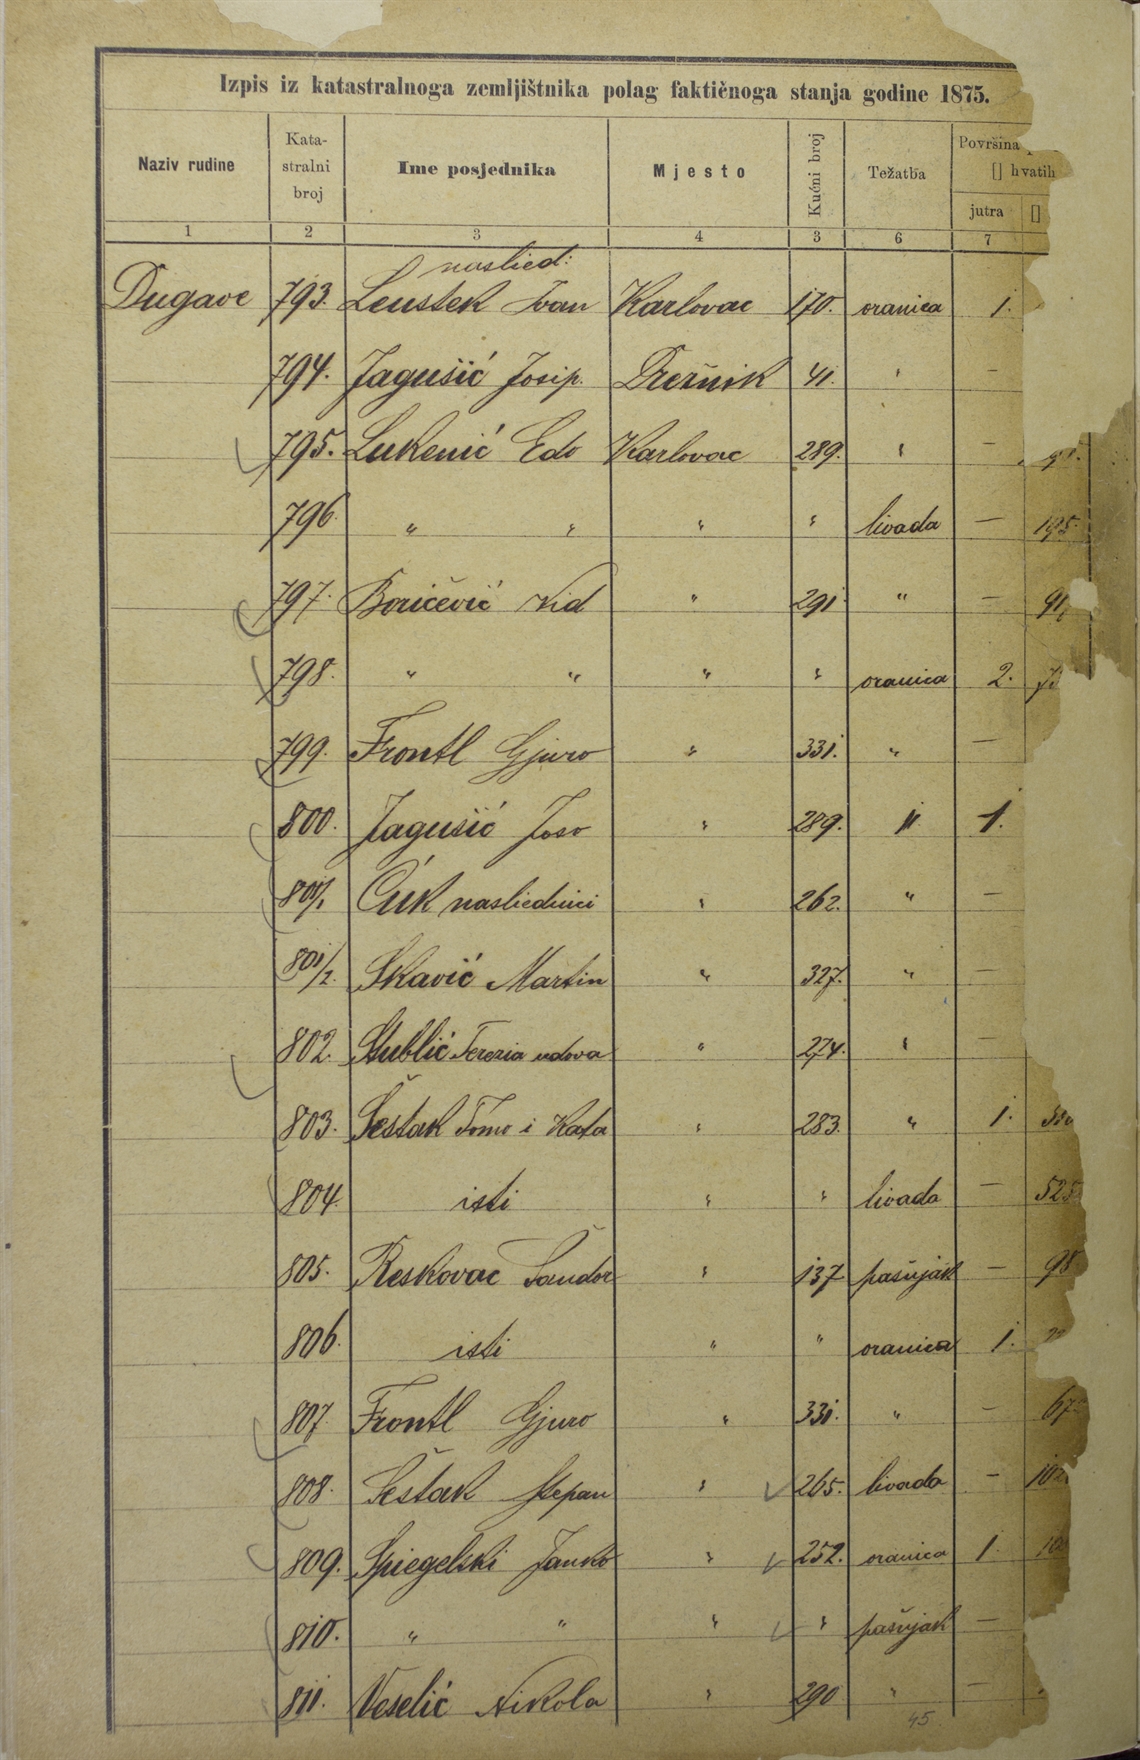 Izpis iz katastralnoga zemljištnika polag faktičnoga stanja godine 1875.
Naziv rudine Kata-stralni broj Ime posjednika Mjesto Kućni broj Težatba Površina
[] hvatih
jutra []
1 2 3 4 3 6 7
nasljed:
Dugave 793. Leustek Ivan Karlovac 170. oranica 1.
794. Jagušić Josip. Drežnik 41. " —
795. Lukenić Edo Karlovac 289. " —
796. " " " " livada — 195.
797. Boričević Vid " 291 " — 91
798. " " " " oranica 2.
799. Frontl Gjuro " 331. " —
800. Jagušić Joso " 289. " 1.
801/1 Cuk nasliednici " 262. " —
801/2. Skavić Martin " 327. " —
802. Stublić Terezia udova " 274. " —
803. Šestak Tomo i Kata " 283. " 1.
804. isti " " livada — 525
805. Reskovac Šandor " 137 pašnjak — 98
806. isti " " oranica 1.
807. Frontl Gjuro " 331. " — 67
808. Šestak Stepan " 265. livada — 102
809. Spiegelski Janko " 252. oranica 1. 10
810. " " " " pašnjak —
811. Veselić Nikola " 290 " —
45